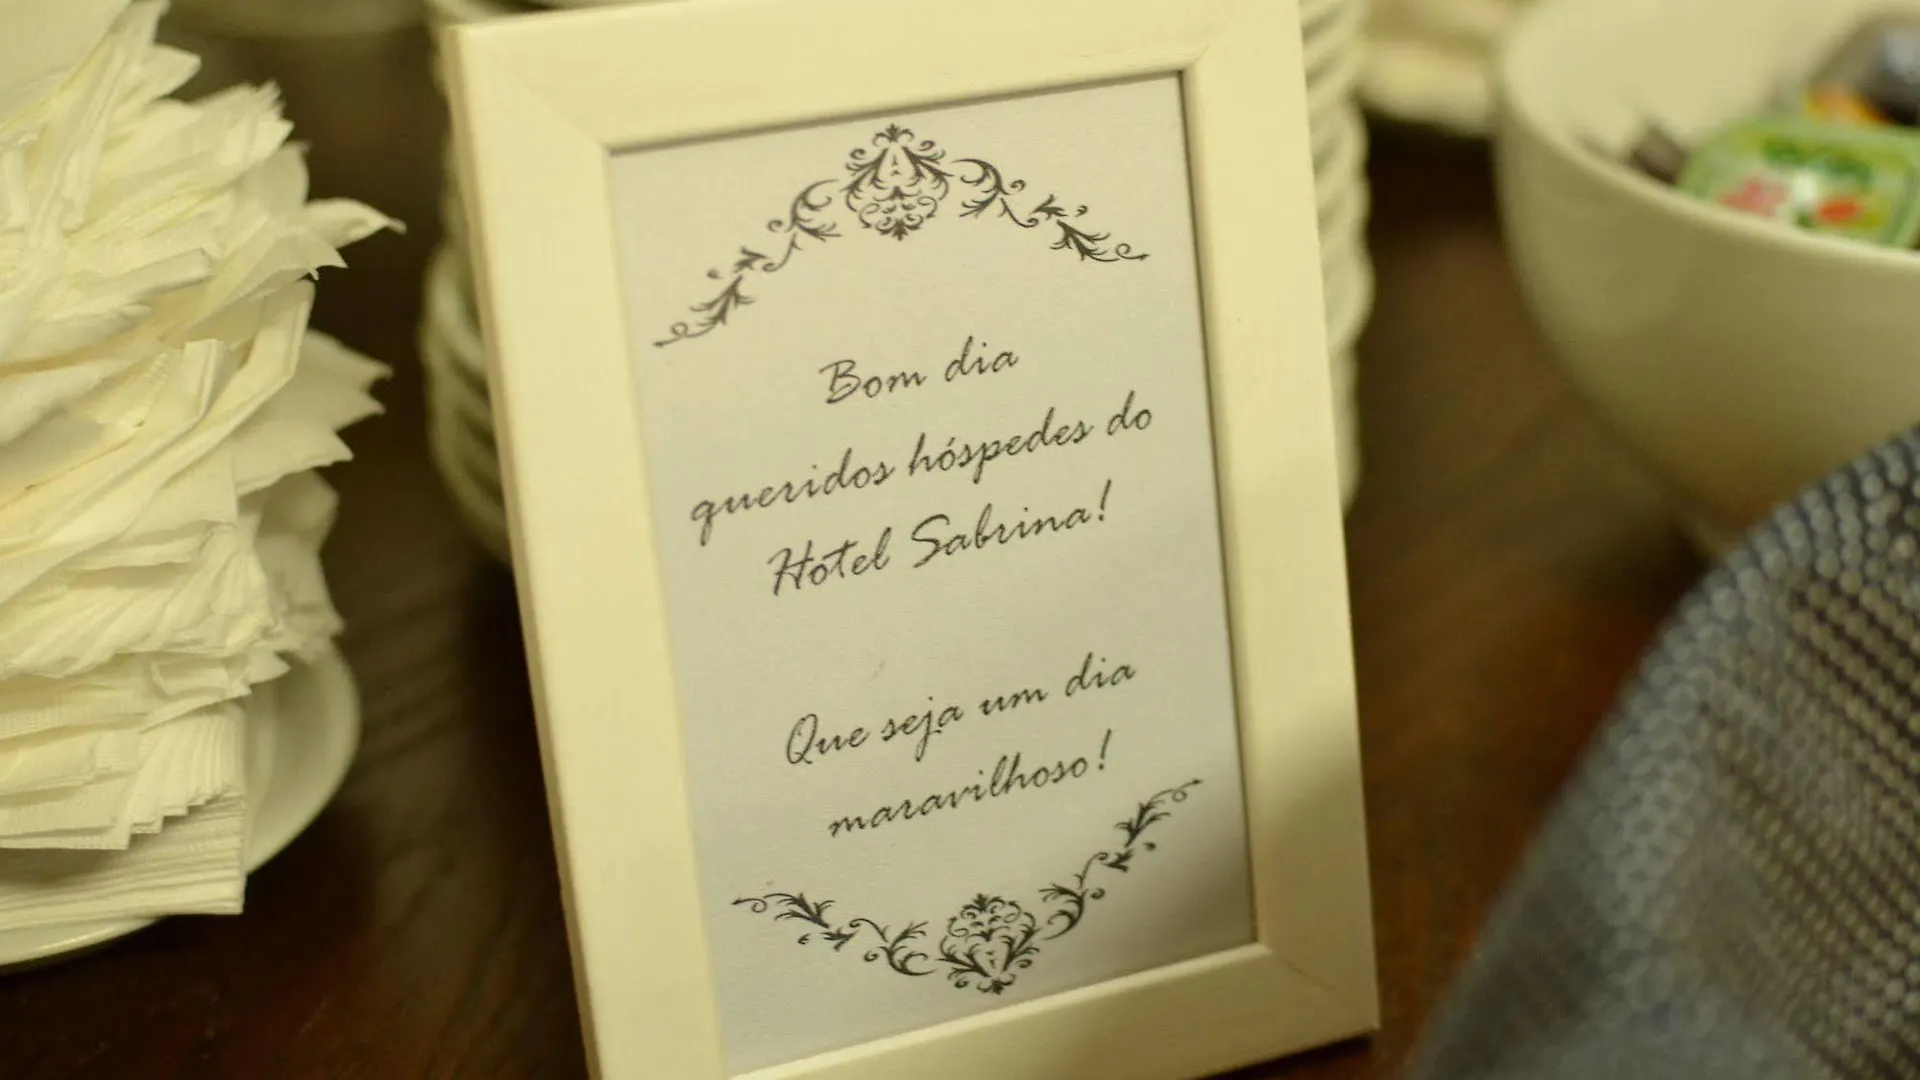 Bom dia
queridos hóspedes do
Hotel Sabrina!
Que seja um dia
maravilhoso!